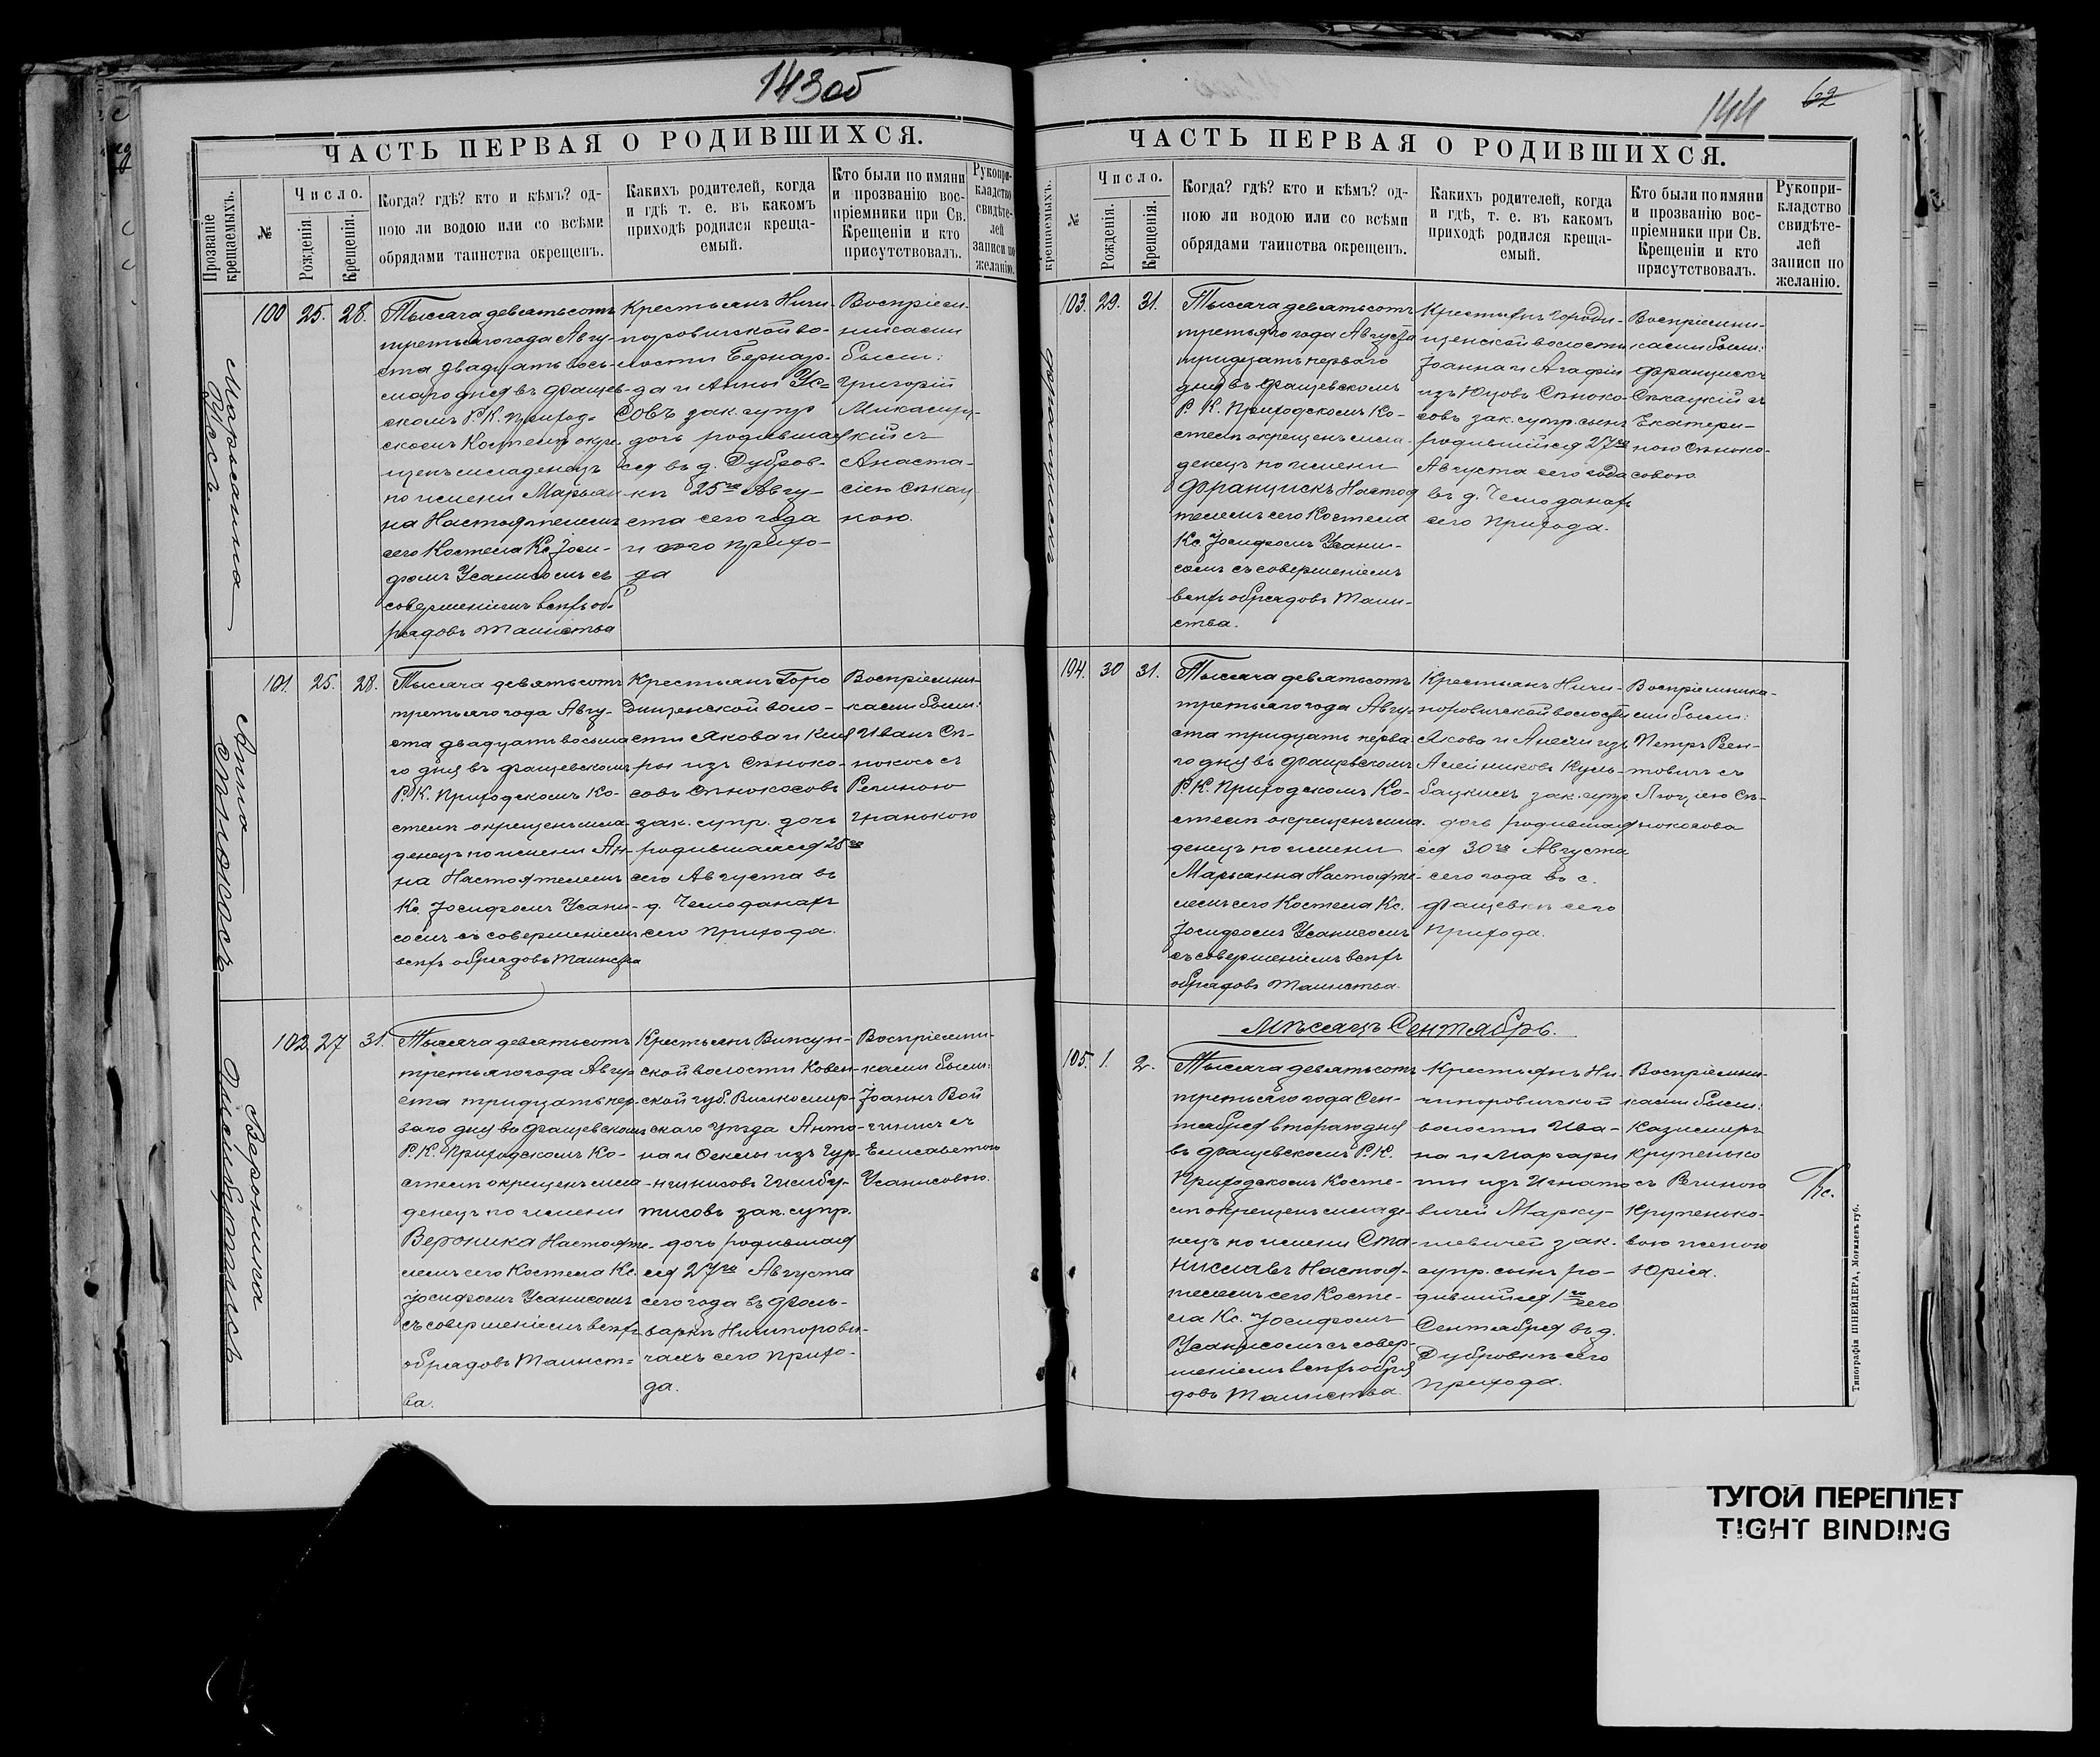 143об
ЧАСТЬ ПЕРВАЯ О РОДИВШИХСЯ.
Прозваніе крещаемыхъ.
№
Число.
Рожденія.
Крещенія.
Когда? гдѣ? кто и кѣмъ? од-
ною ли водою или со всѣми
обрядами таинства окрещенъ.
Какихъ родителей, когда
и гдѣ т. е. въ какомъ
приходѣ родился креща-
емый.
Кто были по имяни
и прозванію вос-
пріемники при Св.
Крещеніи и кто
присутствовалъ.
Рукопри-
кладство
свидѣте-
лей
записи по
желанію.
Марьянна
Усъ
100 25. 28.
Тысяча девятьсотъ
третьяго года Авгу-
ста двадцать вось-
маго дня въ Фащев-
скомъ Р. К. Приход-
скомъ Костелѣ окре-
щенъ младенецъ
по имени Марьян
на Настоятелемъ
сего Костела Кс. Іоси-
фомъ Усанисомъ съ
совершеніемъ всѣхъ об-
рядовъ Таинства
Крестьянъ Ничи-
поровичской во-
лости Бернар-
да и Анны Ус-
совъ зак. супр
дочь родившая
ся въ д. Дубров-
кѣ 25го Авгу-
ста сего года
и сего прихо-
да
Воспріем-
никами
были:
Григорій
кій съ
Анаста-
сіею
кою.
Анна
Сѣнокосъ
101. 25. 28.
Тысяча девятьсотъ
третьяго года Авгу-
ста двадцать восьма
го дня въ Фащевскомъ
Р. К. Приходскомъ Ко-
стелѣ окрещенъ мла-
денецъ по имени Ан-
на Настоятелемъ
Кс. Іосифомъ Усани-
сомъ съ совершеніемъ
всѣхъ обрядовъ Таинства
Крестьянъ Горо
дищенской воло-
сти Якова и
ры изъ Сѣноко-
совъ Сѣнокосовъ
зак. супр. дочь
родившаяся 25го
сего Августа въ
д. Чемоданахъ
сего прихода.
Воспріемни-
ками были:
Иванъ Сѣ-
нокосъ съ
Региною
Вероника
102 27 31.
Тысяча девятьсотъ
третьяго года Авгу
ста тридцать пер-
ваго дня въ Фащевскомъ
Р. К. Приходскомъ Ко-
стелѣ окрещенъ мла
денецъ по имени
Вероника Настояте-
лемъ сего Костела Кс.
Іосифомъ Усанисомъ
съ совершеніемъ всѣхъ
обрядовъ Таинст-
ва.
Крестьянъ
ской волости Ковен-
ской губ. Вилкомир-
скаго уѣзда Анто-
на и Феклы изъ
зак. супр.
дочь родившая
ся 27го Августа
сего года въ Фоль-
варкѣ Ничипорови-
чахъ сего прихо-
да.
Воспріемни-
ками были:
Іоаннъ Вой
съ
Елисаветою
Усанисовою.
144
62
ЧАСТЬ ПЕРВАЯ О РОДИВШИХСЯ.
крещаемыхъ.
№
Число.
Рожденія.
Крещенія.
Когда? гдѣ? кто и кѣмъ? од-
ною ли водою или со всѣми
обрядами таинства окрещенъ.
Какихъ родителей, когда
и гдѣ, т. е. въ какомъ
приходѣ родился креща-
емый.
Кто были по имяни
и прозванію вос-
пріемники при Св.
Крещеніи и кто
присутствовалъ.
Рукопри-
кладство
свидѣте-
лей
записи по
желанію.
Францискъ
103. 29. 31.
Тысяча девятьсотъ
третьяго года Августа
тридцать перваго
дня въ Фащевскомъ
Р. К. Приходскомъ Ко-
стелѣ окрещенъ мла-
денецъ по имени
Францискъ Настоя
телемъ сего Костела
Кс. Іосифомъ Усани-
сомъ съ совершеніемъ
всѣхъ обрядовъ Таин-
ства.
Крестьянъ Городи-
щенской волости
Іоанна и Агафіи
изъ Юцовъ Сѣноко-
совъ зак. супр. сынъ
родившійся 27го
Августа сего года
въ д. Чемоданахъ
сего прихода.
Воспріемни-
ками были:
Францискъ
съ
Екатери-
ною Сѣноко-
совою.
104. 30 31.
Тысяча девятьсотъ
третьяго года Авгу-
ста тридцать перва-
го дня въ Фащевскомъ
Р. К. Приходскомъ Ко-
стелѣ окрещенъ мла-
денецъ по имени
Марьянна Настояте-
лемъ сего Костела Кс.
Іосифомъ Усанисомъ
съ совершеніемъ всѣхъ
обрядовъ Таинства.
Крестьянъ Ничи-
поровичской волости
Якова и Анеліи изъ
Алейниковъ Куль-
бацкихъ зак. супр
дочь родившая
ся 30го Августа
сего года въ с.
Фащевкѣ сего
прихода.
Воспріемника-
ми были:
Петръ Вен-
товичъ съ
Люціею Сѣ-
нокосова
Мѣсяцъ Сентябрь.
105. 1. 2.
Тысяча девятьсотъ
третьяго года Сен-
тября втораго дня
въ Фащевскомъ Р. К.
Приходскомъ Косте-
лѣ окрещенъ младе-
нецъ по имени Ста-
ниславъ Настоя-
телемъ сего Косте-
ла Кс. Іосифомъ
Усанисомъ съ совер-
шеніемъ всѣхъ обря
довъ Таинства.
Крестьянъ Ни-
чипоровичской
волости Ива-
на и Маргари
ты изъ Игнато
вичей Марку-
шевичей зак.
супр. сынъ ро-
дившійся 1го сего
Сентября въ д.
Дубровкѣ сего
прихода.
Воспріемни-
ками были:
Казимиръ
Крупенько
съ Региною
Крупенько-
вою женою
Юрія.
Кс.
Типографія ШНЕЙДЕРА, Могилевъ губ.
ТУГОЙ ПЕРЕПЛЕТ
TIGHT BINDING